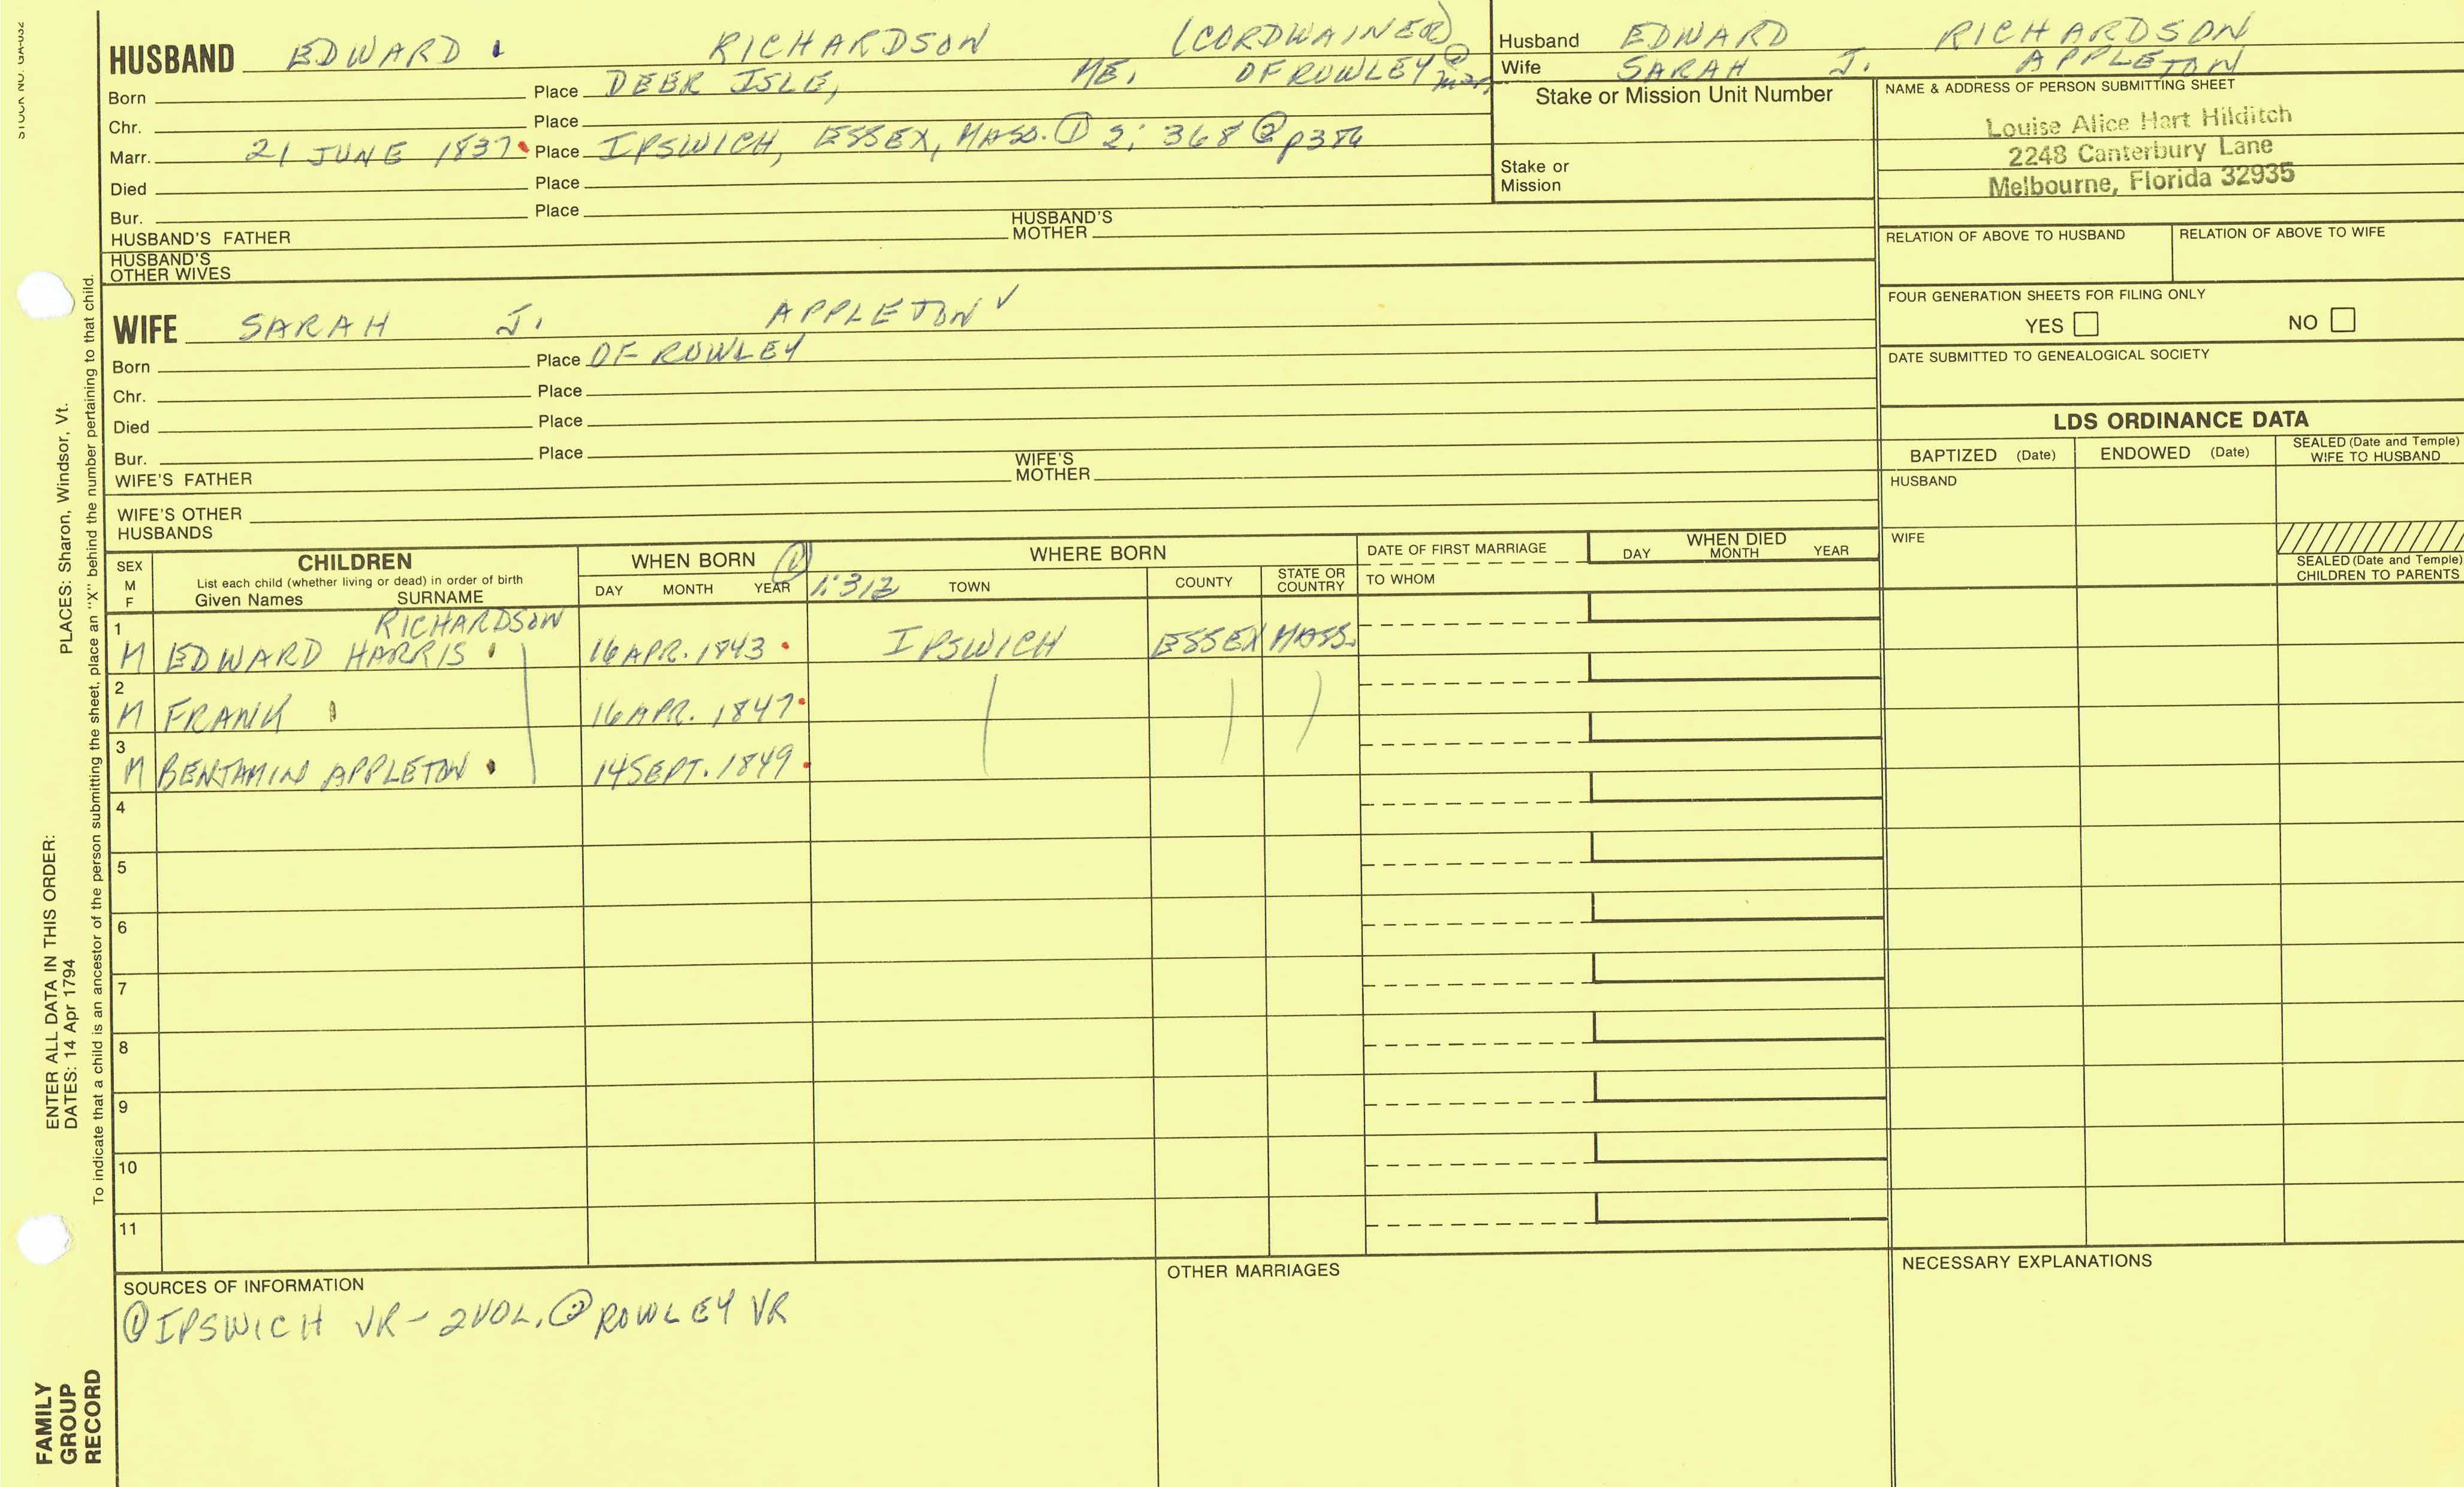 STOCK NO. GA-032
HUSBAND EDWARD RICHARDSON (CORDWAINER) ②
Born Place DEER ISLE, ME. OF ROWLEY
Chr. Place
Marr. 21 JUNE 1837 Place IPSWICH, ESSEX, MASS. ① 2: 368 ②
Died Place
Bur. Place
HUSBAND'S FATHER HUSBAND'S MOTHER
HUSBAND'S OTHER WIVES
WIFE SARAH J. APPLETON ✓
Born Place OF ROWLEY
Chr. Place
Died Place
Bur. Place
WIFE'S FATHER WIFE'S MOTHER
WIFE'S OTHER HUSBANDS
Husband EDWARD RICHARDSON
Wife SARAH J. APPLETON
Stake or Mission Unit Number
Stake or Mission
NAME & ADDRESS OF PERSON SUBMITTING SHEET
Louise Alice Hart Hilditch
2248 Canterbury Lane
Melbourne, Florida 32935
RELATION OF ABOVE TO HUSBAND RELATION OF ABOVE TO WIFE
FOUR GENERATION SHEETS FOR FILING ONLY
YES NO
DATE SUBMITTED TO GENEALOGICAL SOCIETY
LDS ORDINANCE DATA
BAPTIZED (Date) ENDOWED (Date) SEALED (Date and Temple) WIFE TO HUSBAND
HUSBAND
WIFE
SEALED (Date and Temple) CHILDREN TO PARENTS
SEX M F
CHILDREN
List each child (whether living or dead) in order of birth
Given Names SURNAME
WHEN BORN ①
DAY MONTH YEAR
1:312
WHERE BORN
TOWN COUNTY STATE OR COUNTRY
DATE OF FIRST MARRIAGE
TO WHOM
WHEN DIED
DAY MONTH YEAR
1 RICHARDSON
M EDWARD HARRIS 16 APR. 1843 IPSWICH ESSEX MASS.
2
M FRANK 16 APR. 1847
3
M BENJAMIN APPLETON 14 SEPT. 1849
4
5
6
7
8
9
10
11
SOURCES OF INFORMATION
① IPSWICH VR - 2 VOL. ② ROWLEY VR
OTHER MARRIAGES
NECESSARY EXPLANATIONS
ENTER ALL DATA IN THIS ORDER:
DATES: 14 Apr 1794
PLACES: Sharon, Windsor, Vt.
To indicate that a child is an ancestor of the person submitting the sheet, place an "X" behind the number pertaining to that child.
FAMILY
GROUP
RECORD